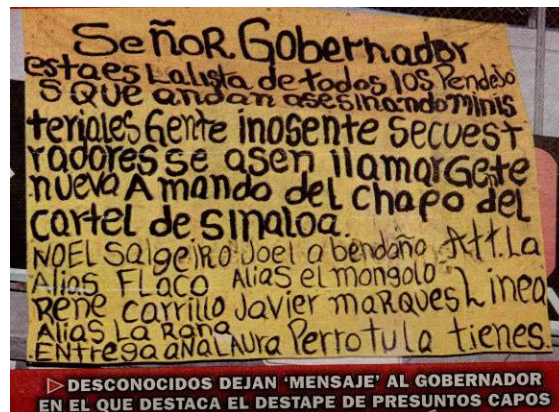 SeÑoR. Gobernador
esta es La lista de todos los Pendejo
s QUE andan asesinando minis
teriales Gente inosente Secuest
radores se asen llamar Gente
nueva A mando del chapo del
cartel de sinaloa.
NOEL Salgeiro Joel abendaño Att. La
Alias FLACO Alias el mongolo
Rene Carrillo Javier maRques Linea
Alias La Rana
ENtrega a ANa LAUra Perro tu la tienes.
▷ DESCONOCIDOS DEJAN 'MENSAJE' AL GOBERNADOR
EN EL QUE DESTACA EL DESTAPE DE PRESUNTOS CAPOS